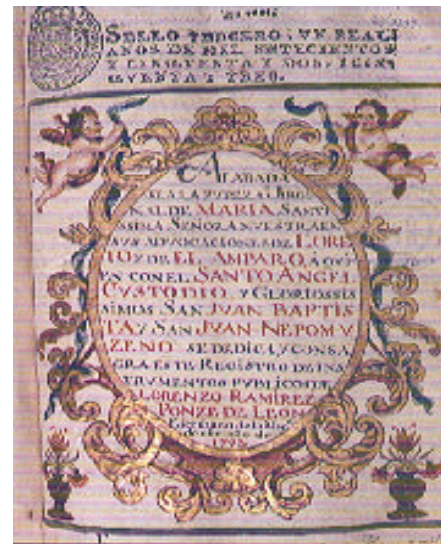 SELLO TERCERO, VN REAL,
AÑOS DE MIL SETECIENTOS
Y CINQVENTA Y DOS, Y CINQ
QVENTA Y TRES.
ALABADA
SEA LA
NAL DE MARIA SANTI
SSIMA SEÑORA NVESTRA EN
SVS ADVOCACIONES DE LORE
TO Y DE EL AMPARO, A QVI
EN CON EL SANTO ANGEL
CVSTODIO, Y GLORIOSSIS
SIMOS SAN JVAN BAPTIS
TA Y SAN JVAN NEPOMV
ZENO SE DEDICA, Y CONSA
GRA ESTE REGISTRO DE INS
TRVMENTOS PVBLICOS DE
LORENZO RAMIREZ
PONZE DE LEON